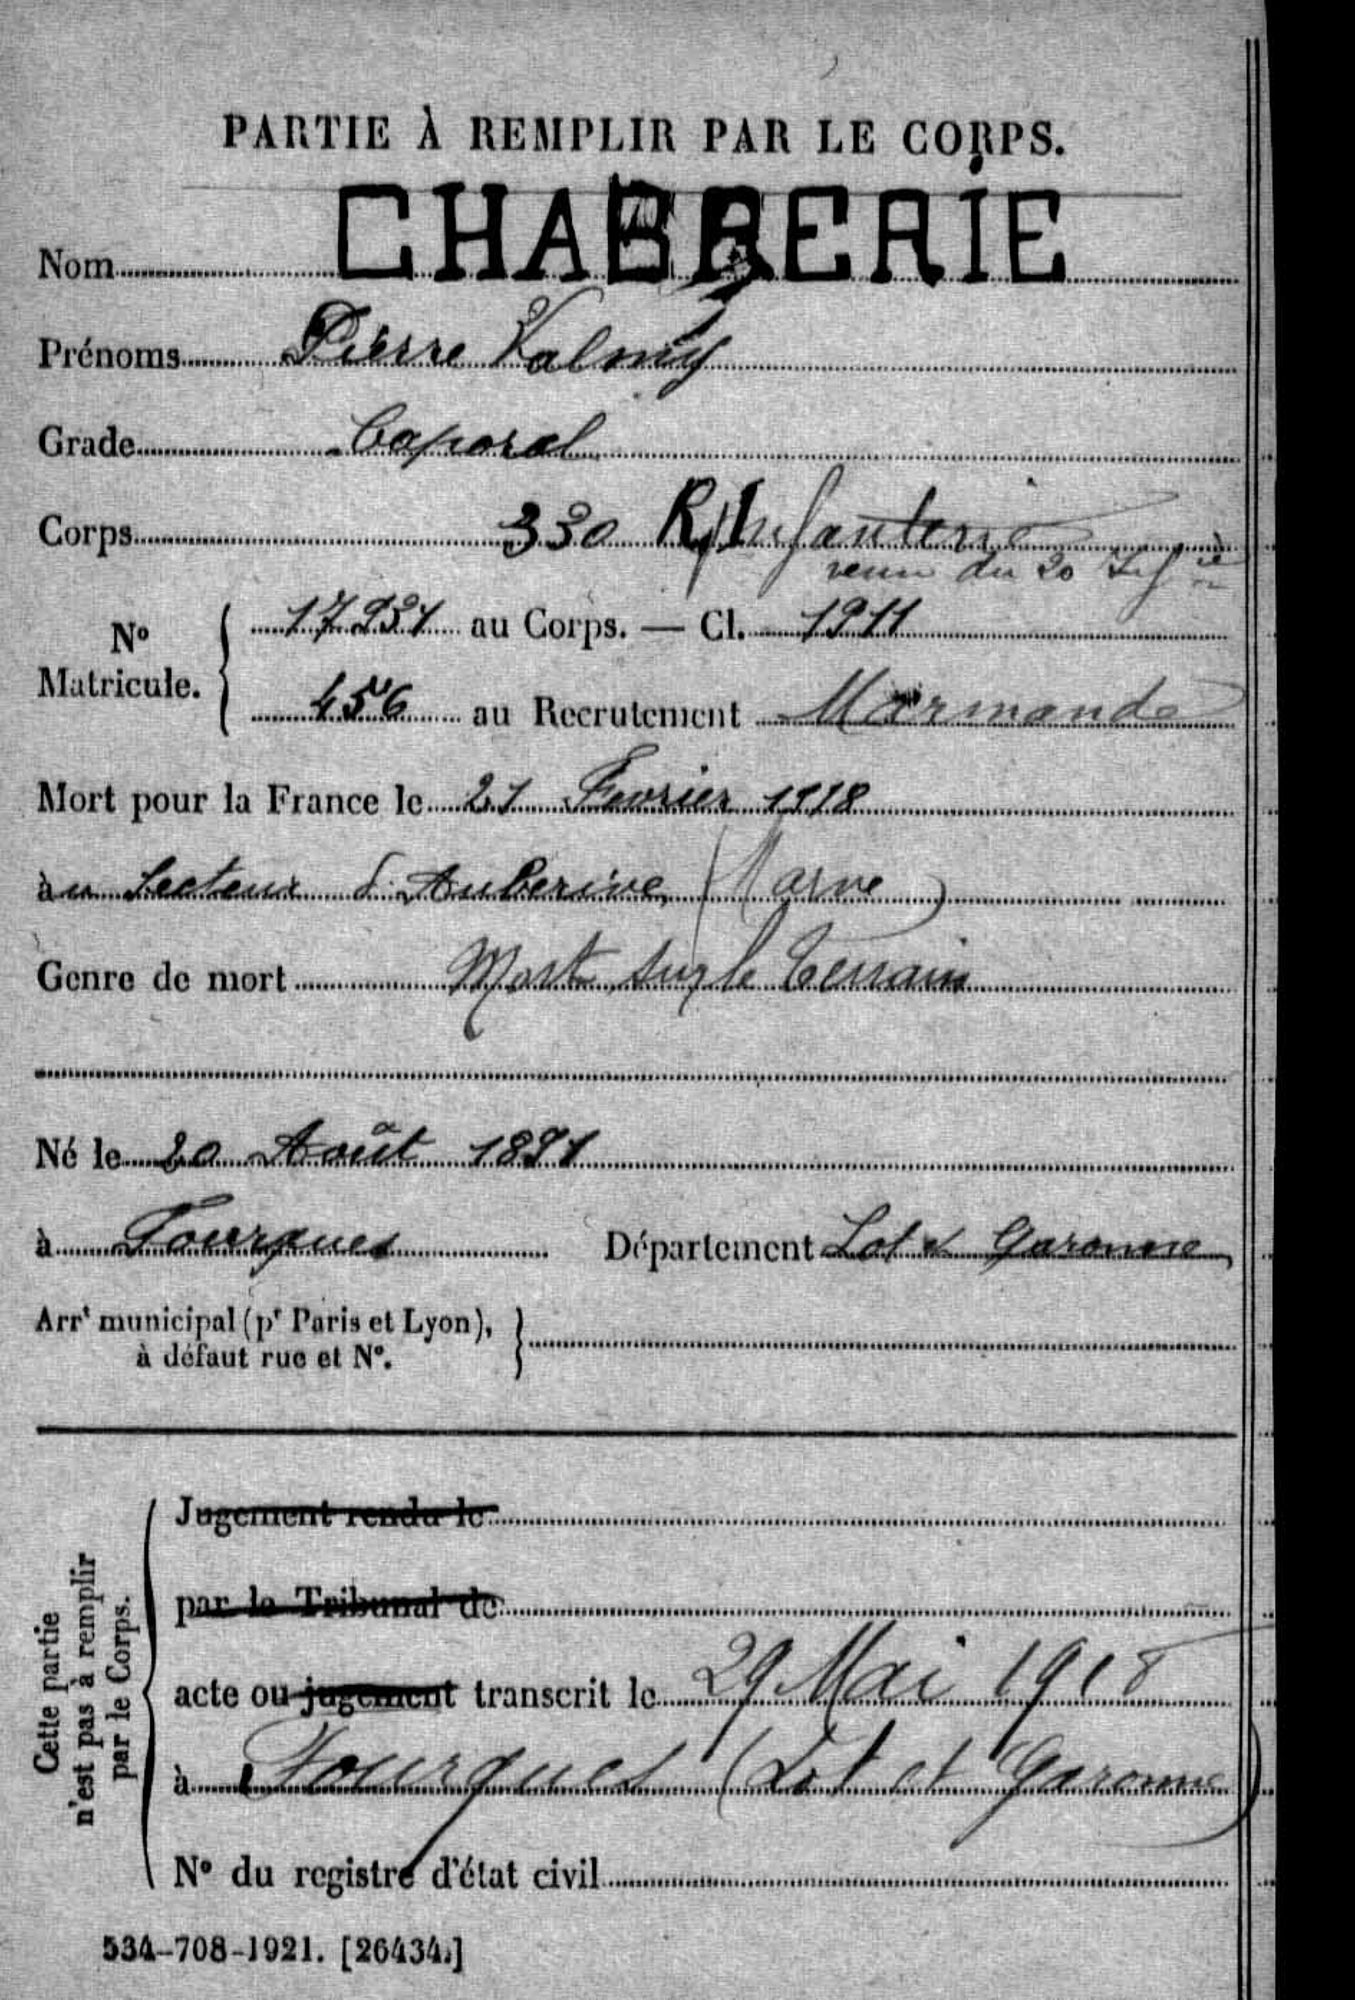 PARTIE À REMPLIR PAR LE CORPS.
Nom CHABRERIE
Prénoms Pierre Valmy
Grade Caporal
Corps 330 R. Infanterie
venu du 20
Nº Matricule. 17931 au Corps. — Cl. 1911
456 au Recrutement Marmande
Mort pour la France le 21 Fevrier 1918
àu Secteur d'Auberive (Marne)
Genre de mort Mort sur le Terrain
Né le 20 Août 1891
à Fourques Département Lot & Garonne
Arrt municipal (pr Paris et Lyon),
à défaut rue et Nº.
Cette partie
n'est pas à remplir
par le Corps.
Jugement rendu le
par le Tribunal de
acte ou jugement transcrit le 29 Mai 1918
à Fourques (Lot et Garonne)
Nº du registre d'état civil
534-708-1921. [26434.]